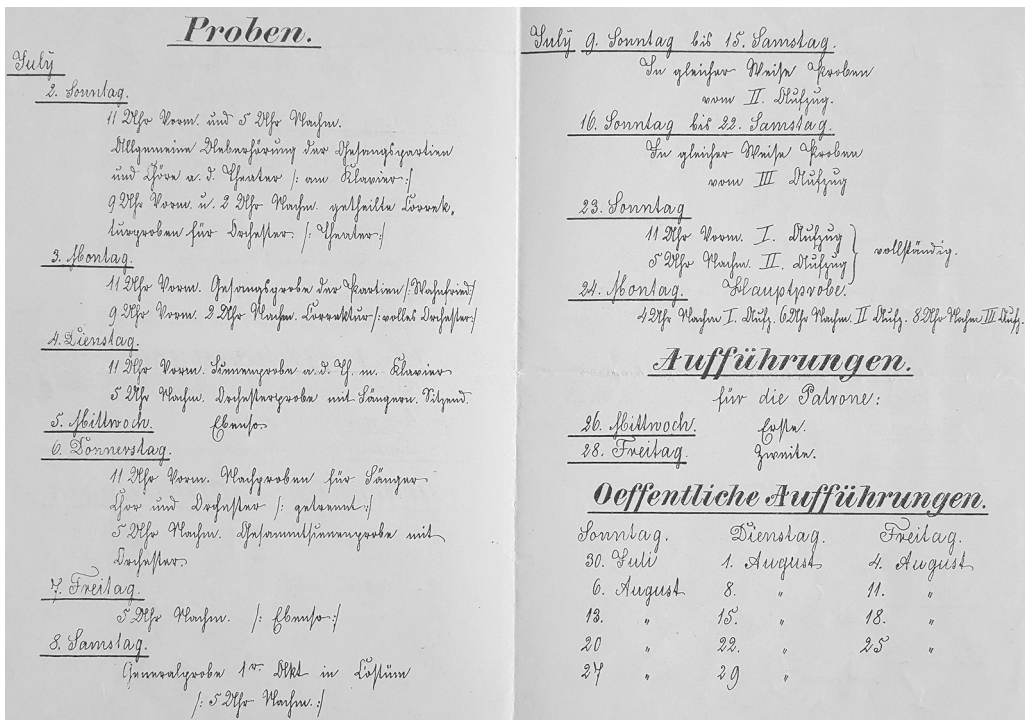 Proben.
July
2. Sonntag.
11 Uhr Vorm. und 5 Uhr Nachm.
Allgemeine Ueberhörung der Gesangspartien
und Chöre a. d. Theater /: am Klavier :/
9 Uhr Vorm. u. 2 Uhr Nachm. getheilte Correk-
turproben für Orchester. /: Theater :/
3. Montag.
11 Uhr Vorm. Gesangsprobe der Partien /: Wahnfried :/
9 Uhr Vorm. 2 Uhr Nachm. Correktur /: volles Orchester :/
4. Dienstag.
11 Uhr Vorm. Scenenprobe a. d. Th. m. Klavier
5 Uhr Nachm. Orchesterprobe mit Sängern. Sitzend.
5. Mittwoch. Ebenso
6. Donnerstag.
11 Uhr Vorm. Nachproben für Sänger
Chor und Orchester /: getrennt :/
5 Uhr Nachm. Gesammtscenenprobe mit
Orchester.
7. Freitag.
5 Uhr Nachm. /: Ebenso :/
8. Samstag.
Generalprobe 1r. Akt in Costüm
/: 5 Uhr Nachm. :/
July 9. Sonntag bis 15. Samstag.
In gleicher Weise Proben
vom II. Aufzug.
16. Sonntag bis 22. Samstag.
In gleicher Weise Proben
vom III Aufzug
23. Sonntag
11 Uhr Vorm. I. Aufzug
5 Uhr Nachm. II. Aufzug } vollständig.
24. Montag. Hauptprobe.
4 Uhr Nachm I. Aufz. 6 Uhr Nachm. II Aufz. 8 Uhr Nachm III Aufz.
Aufführungen.
für die Patrone:
26. Mittwoch. Erste.
28. Freitag. Zweite.
Oeffentliche Aufführungen.
Sonntag. Dienstag. Freitag.
30. Juli 1. August 4. August
6. August 8. " 11. "
13. " 15. " 18. "
20 " 22. " 25 "
27 " 29 "